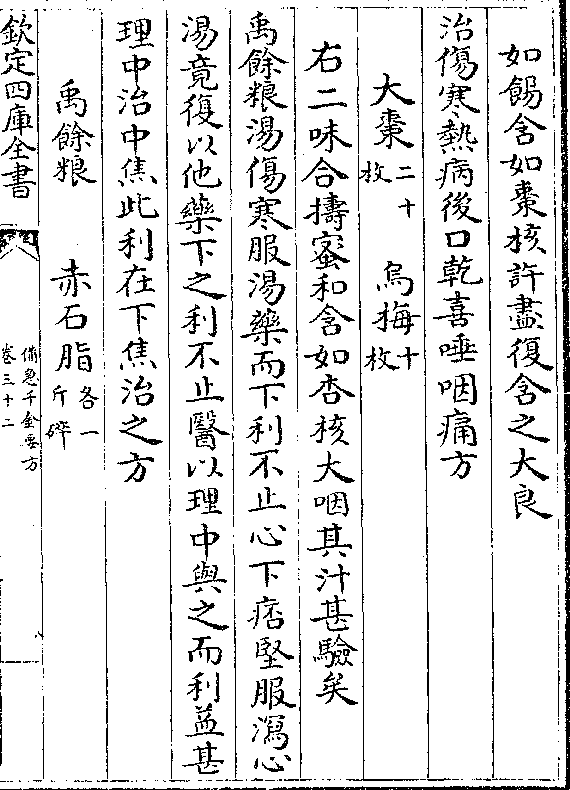 如餳含如棗核許盡復含之大良
治傷寒熱病後口乾喜唾咽痛方
大棗二十枚 烏梅十枚
右二味合擣蜜和含如杏核大咽其汁甚驗矣
禹餘粮湯傷寒服湯藥而下利不止心下痞堅服瀉心
湯竟復以他藥下之利不止醫以理中與之而利益甚
理中治中焦此利在下焦治之方
禹餘粮 赤石脂各一斤碎
欽定四庫全書
備急千金要方
卷三十二